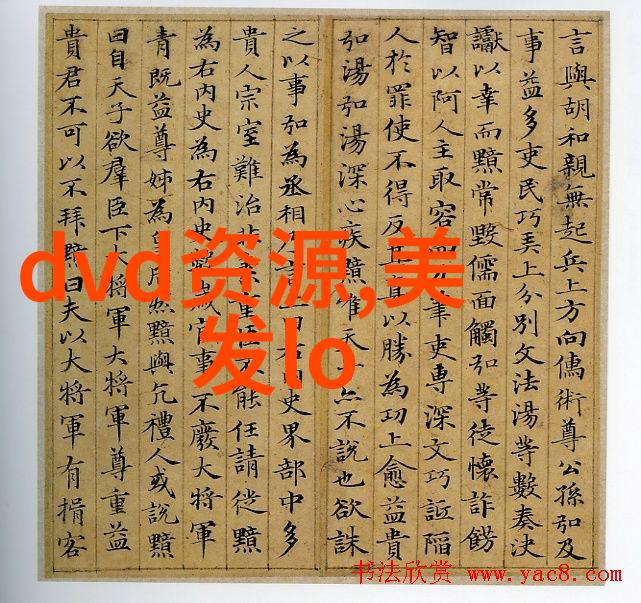 言與胡和親無起兵上方向儒術尊公孫弘及
事益多吏民巧弄上分別文法湯等數奏決
讞以幸而黯常毀儒面觸弘等徒懷詐飾
智以阿人主取容筆吏專深文巧詆陷
人於罪使不得反以勝為功上愈益貴
弘湯弘湯深心疾黯唯天不說也欲誅
之以事弘為丞相曰右內史界部中多
貴人宗室難治能任請徙黯
為右內史為右內史官事不廢大將軍
青既益尊姊為黯與亢禮人或說黯
曰自天子欲羣臣下大將軍大將軍尊重益
貴君不可以不拜黯曰夫以大將軍有揖客
dvd资源,美
发lo
书法欣赏 www.yac8.com